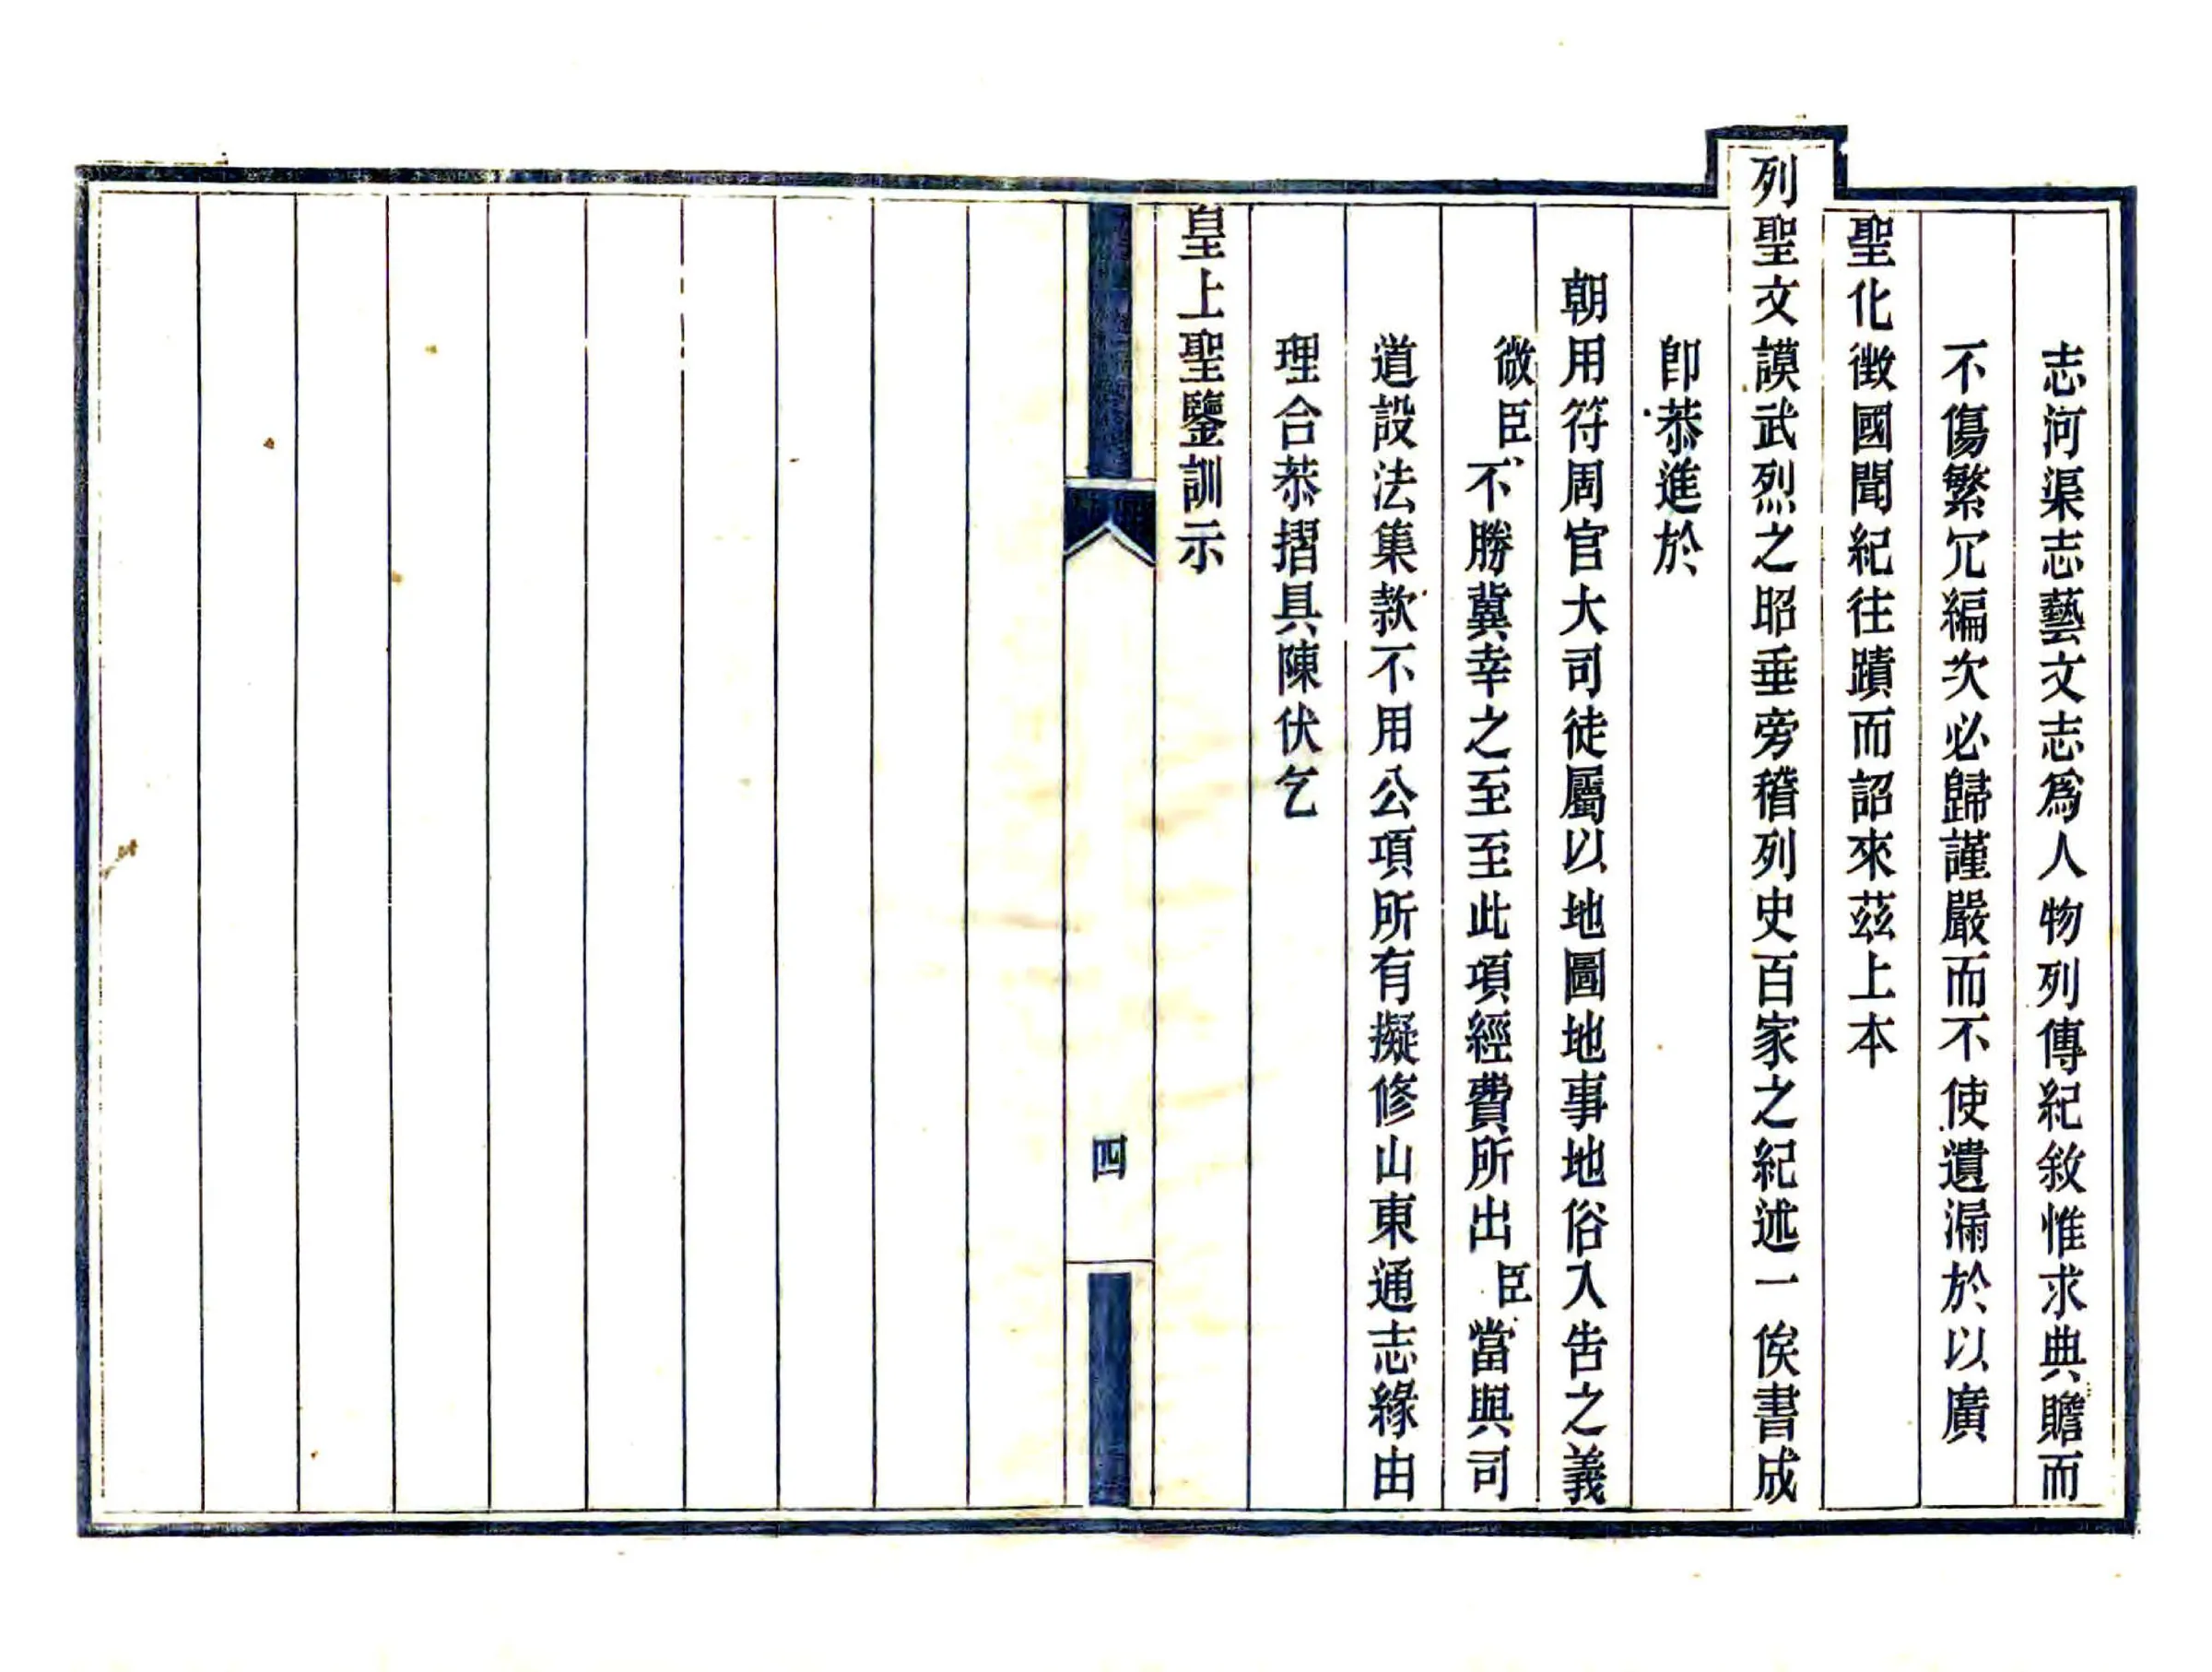 志河渠志藝文志爲人物列傳紀敘惟求典贍而
不傷繁冗編次必歸謹嚴而不使遺漏於以廣
聖化徵國聞紀往蹟而詔來茲上本
列聖文謨武烈之昭垂旁稽列史百家之紀述一俟書成
卽恭進於
朝用符周官大司徒屬以地圖地事地俗入告之義
微臣不勝冀幸之至至此項經費所出臣當與司
道設法集款不用公項所有擬修山東通志緣由
理合恭摺具陳伏乞
皇上聖鑒訓示
四